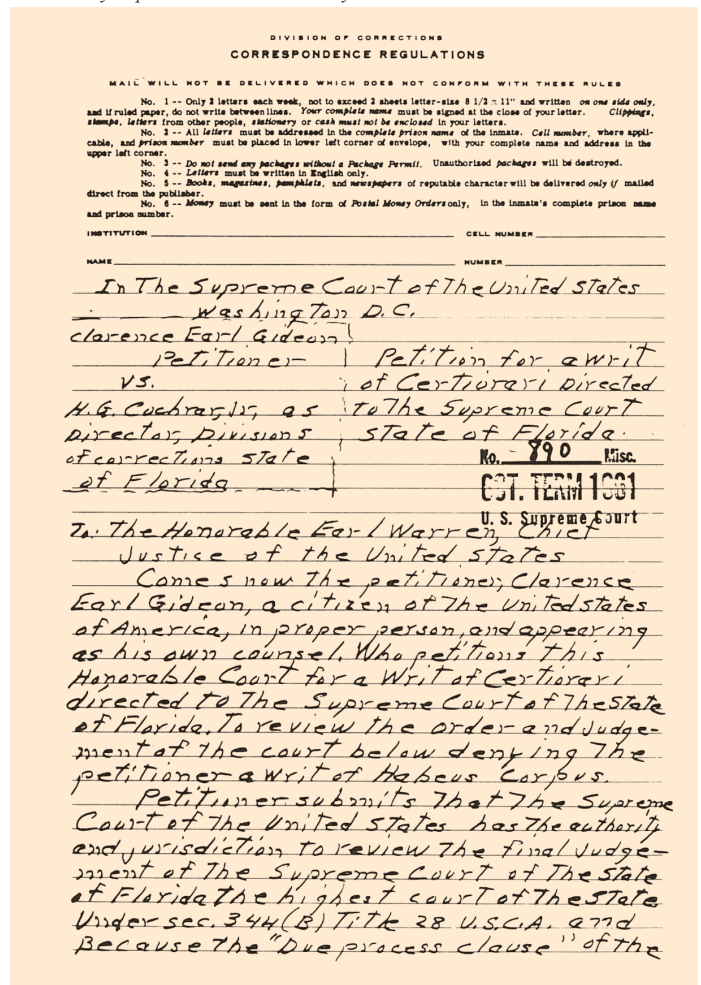 DIVISION OF CORRECTIONS
CORRESPONDENCE REGULATIONS
MAIL WILL NOT BE DELIVERED WHICH DOES NOT CONFORM WITH THESE RULES
No. 1 -- Only 2 letters each week, not to exceed 2 sheets letter-size 8 1/2 x 11" and written on one side only,
and if ruled paper, do not write between lines. Your complete name must be signed at the close of your letter. Clippings,
stamps, letters from other people, stationery or cash must not be enclosed in your letters.
No. 2 -- All letters must be addressed in the complete prison name of the inmate. Cell number, where appli-
cable, and prison number must be placed in lower left corner of envelope, with your complete name and address in the
upper left corner.
No. 3 -- Do not send any packages without a Package Permit. Unauthorized packages will be destroyed.
No. 4 -- Letters must be written in English only.
No. 5 -- Books, magazines, pamphlets, and newspapers of reputable character will be delivered only if mailed
direct from the publisher.
No. 6 -- Money must be sent in the form of Postal Money Orders only, in the inmate's complete prison name
and prison number.
INSTITUTION CELL NUMBER
NAME NUMBER
In The Supreme Court of The United States
Washington D.C.
clarence Earl Gideon
Petitioner Petition for a writ
vs. of Certiorari Directed
H.G. Cochran, Jr, as to The Supreme Court
Director, Divisions State of Florida.
of corrections state No. 890 Misc.
of Florida OCT. TERM 1961
U. S. Supreme Court
To: The Honorable Earl Warren, Chief
Justice of the United States
Comes now The petitioner, Clarence
Earl Gideon, a citizen of The United states
of America, in proper person, and appearing
as his own counsel. Who petitions this
Honorable Court for a Writ of Certiorari
directed to The Supreme Court of The State
of Florida. To review the order and Judge-
ment of the court below denying The
petitioner a writ of Habeus Corpus.
Petitioner submits That The Supreme
Court of The United States has The authority
and jurisdiction to review The final Judge-
ment of The Supreme Court of The State
of Florida the highest court of The State
Under sec. 344(B) Title 28 U.S.C.A. and
Because the "Due process clause" of the